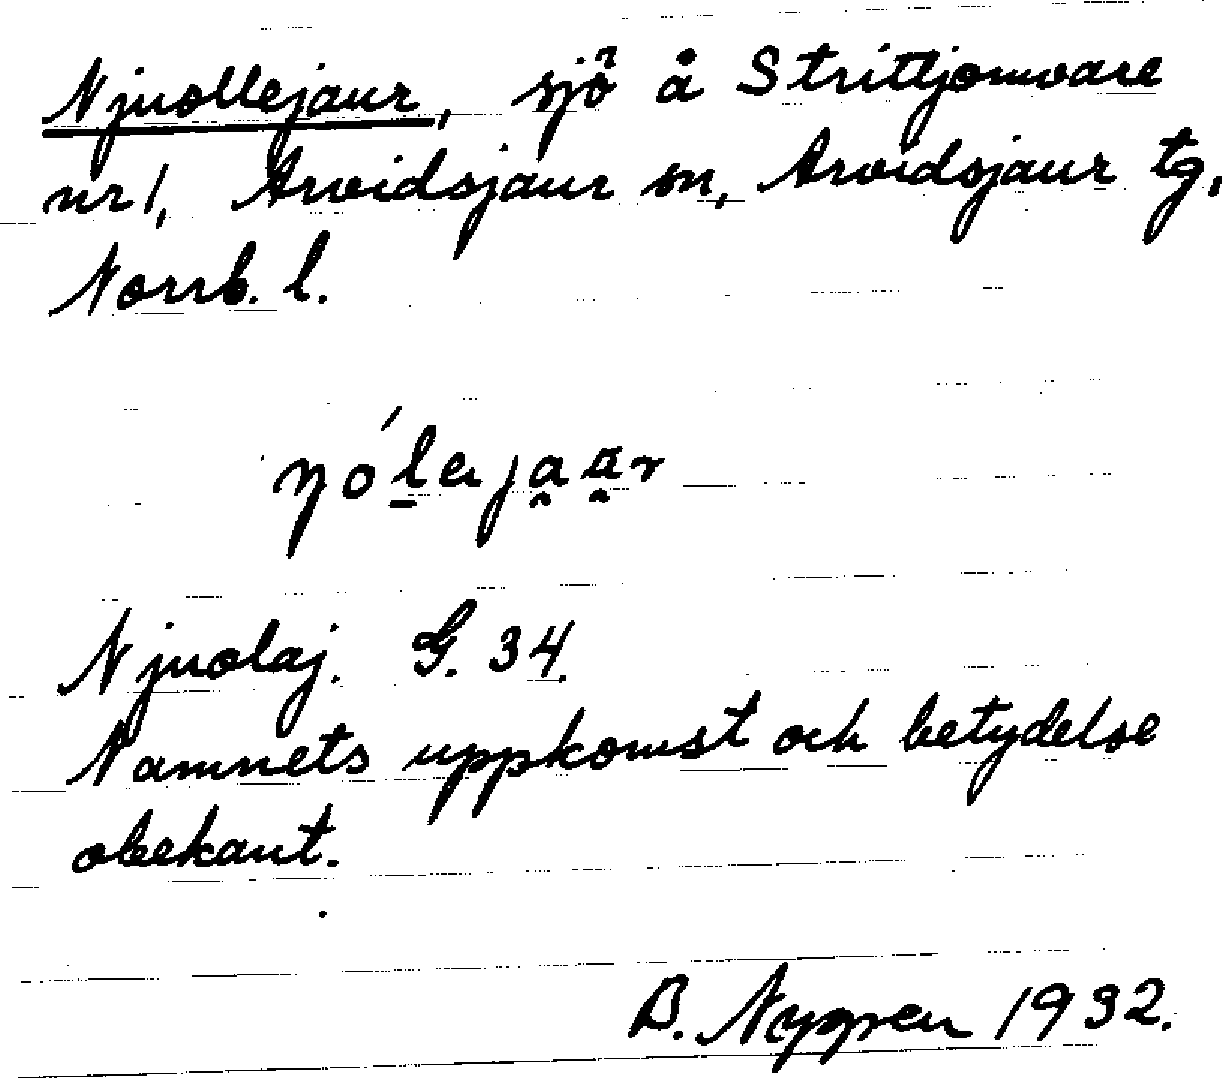 Njuollejaur, sjö å Strittjomvare
nr 1, Arvidsjaur sn, Arvidsjaur tg,
Norrb. l.
Njuolaj. G. 34.
Namnets uppkomst och betydelse
obekant.
B. Nygren 1932.